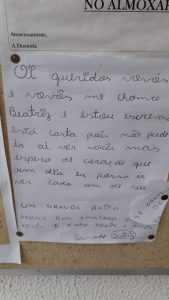 NO ALMOXAR
Atenciosamente,
A Diretoria
Oi queridos vovôs
e vovós me chamo
Beatriz e estou escreven
está carta pois não pude
ir ai ver vocês mas
espero de coração que
um dia eu possa ir
ver cada um de vocês
UM GRANDE BEIJO
ABRAÇO BEM APERTADO
VOCÊS E
Beatriz